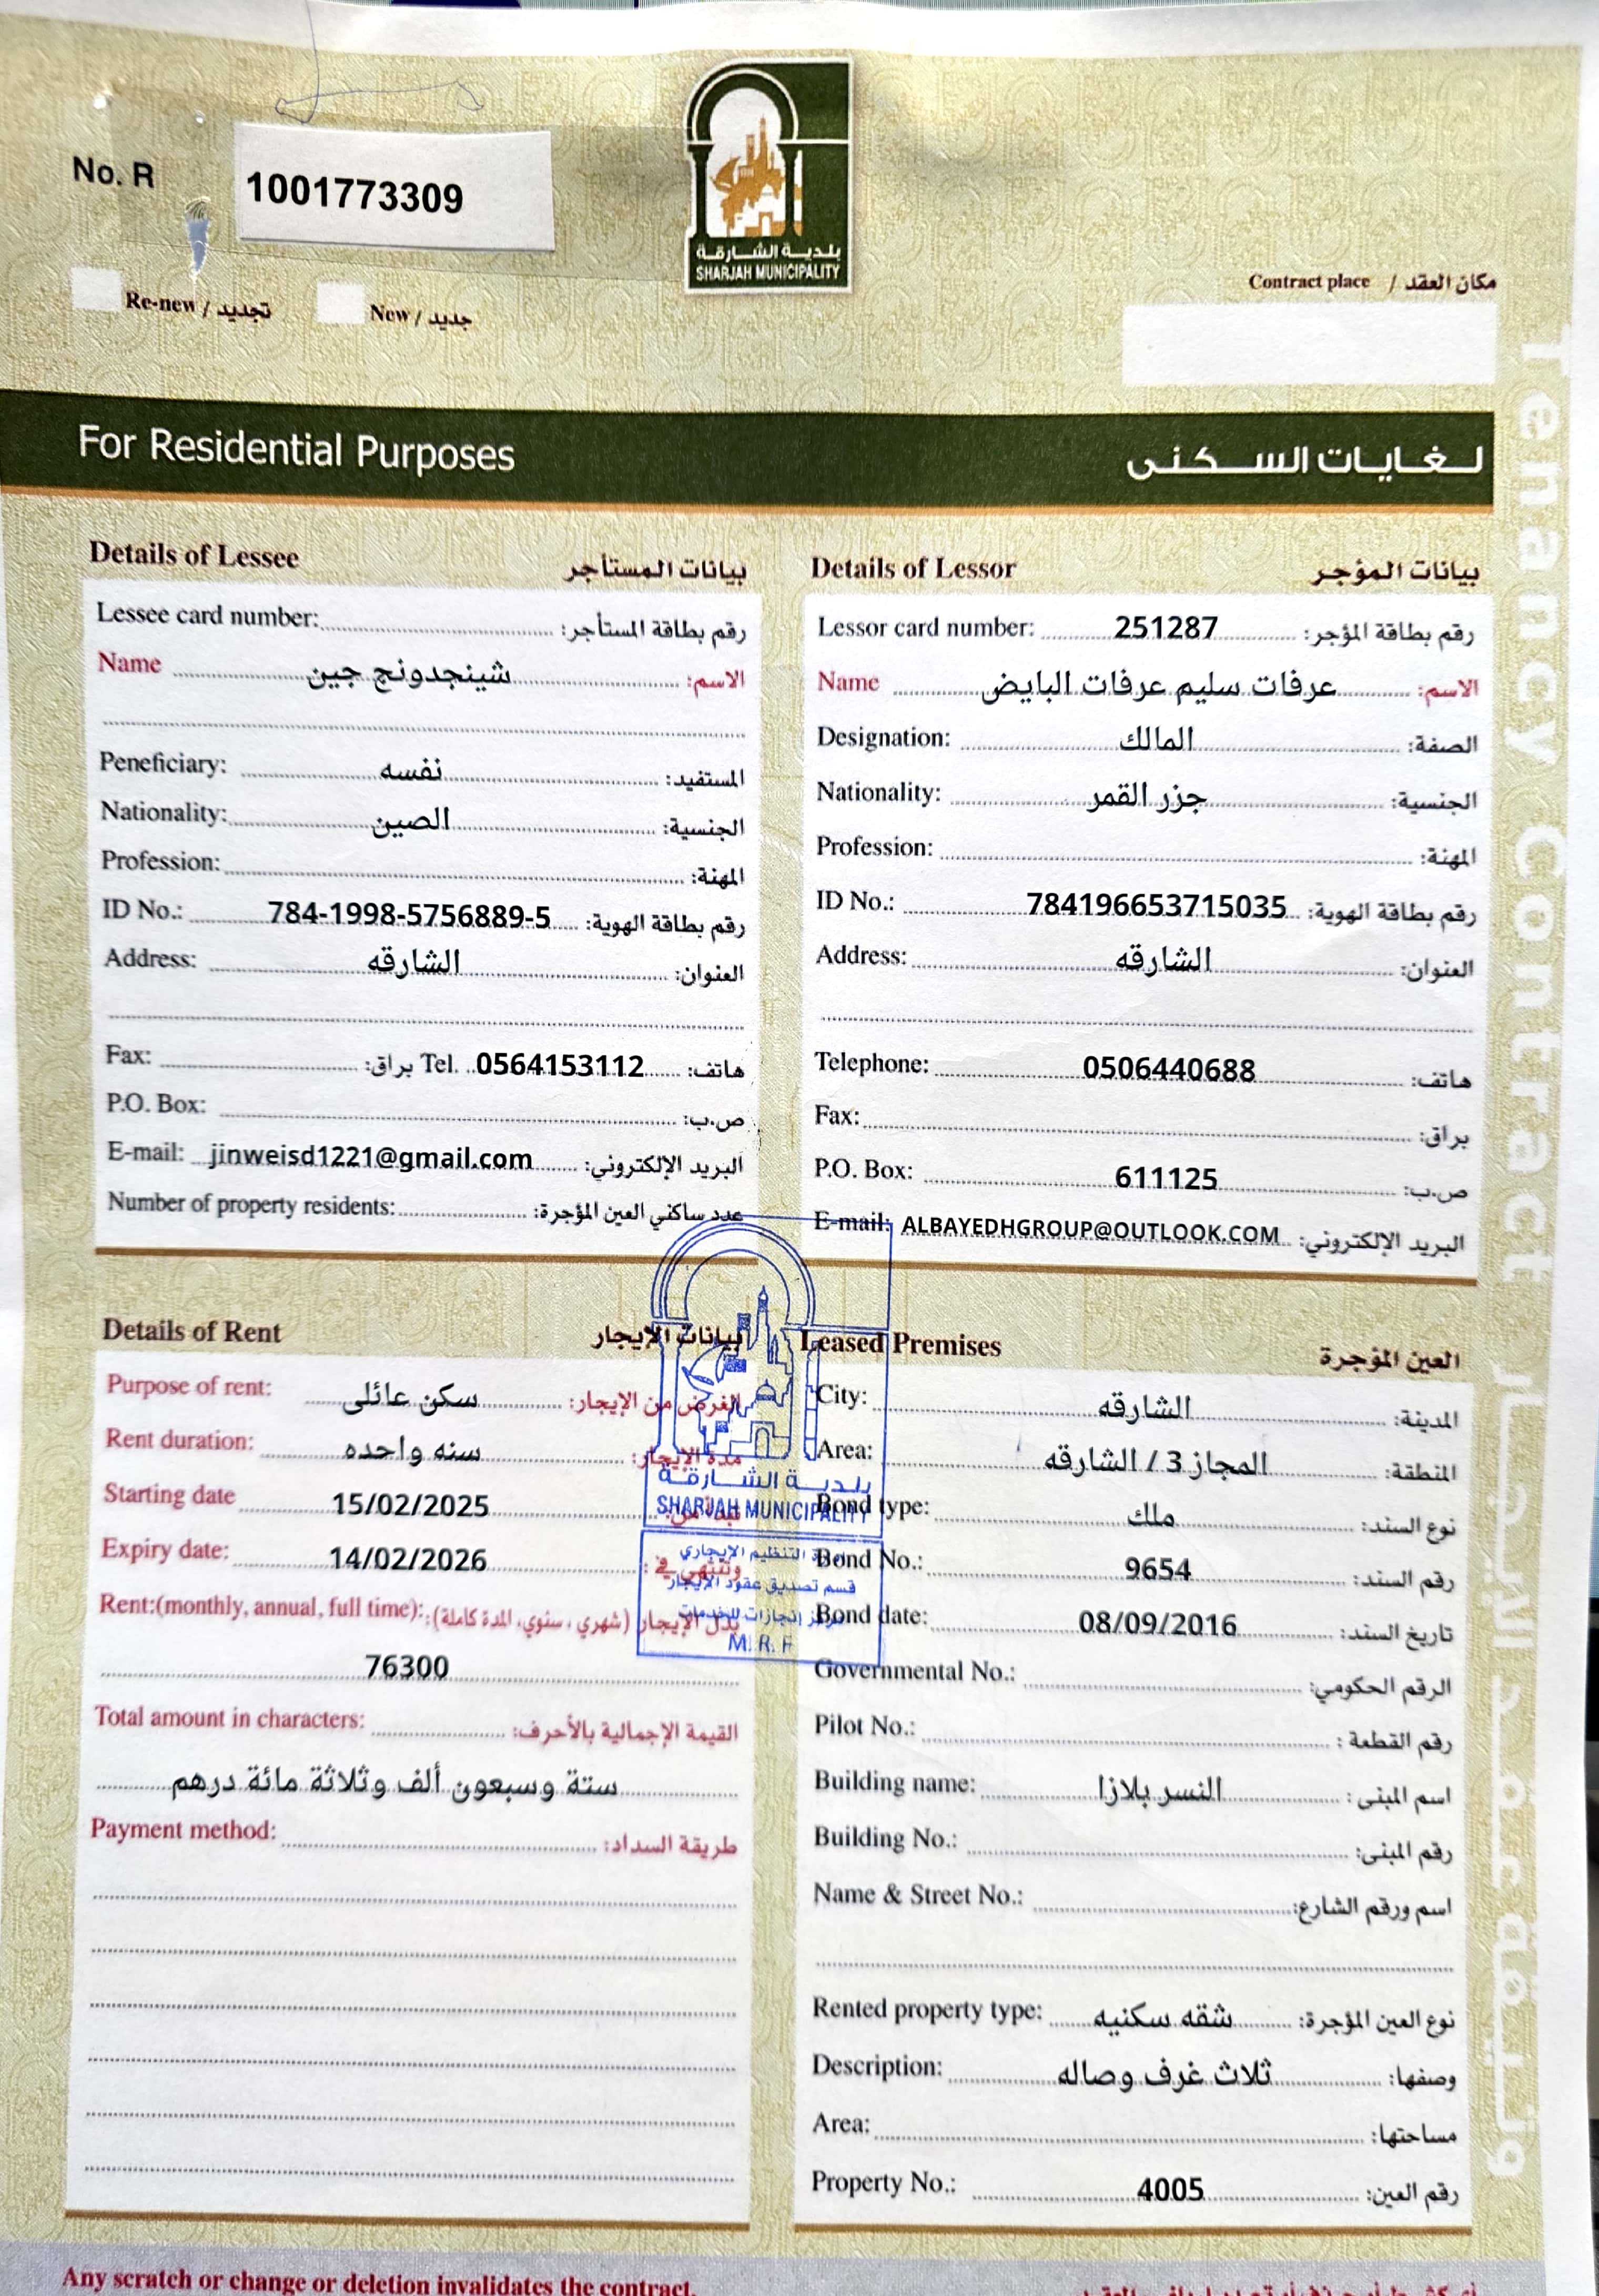 No. R 1001773309
بلدية الشارقة
SHARJAH MUNICIPALITY
Re-new / تجديد New / جديد
Contract place / مكان العقد
For Residential Purposes لغايات السكنى
Tenancy Contract
Details of Lessee بيانات المستأجر
Lessee card number: رقم بطاقة المستأجر:
Name شينجدونج جين الاسم:
Peneficiary: نفسه المستفيد:
Nationality: الصين الجنسية:
Profession: المهنة:
ID No.: 784-1998-5756889-5 رقم بطاقة الهوية:
Address: الشارقه العنوان:
Fax: براق: Tel. 0564153112 هاتف:
P.O. Box: ص.ب:
E-mail: jinweisd1221@gmail.com البريد الإلكتروني:
Number of property residents: عدد ساكني العين المؤجرة:
Details of Lessor بيانات المؤجر
Lessor card number: 251287 رقم بطاقة المؤجر:
Name عرفات سليم عرفات البايض الاسم:
Designation: المالك الصفة:
Nationality: جزر القمر الجنسية:
Profession: المهنة:
ID No.: 784196653715035 رقم بطاقة الهوية:
Address: الشارقه العنوان:
Telephone: 0506440688 هاتف:
Fax: براق:
P.O. Box: 611125 ص.ب:
E-mail: ALBAYEDHGROUP@OUTLOOK.COM البريد الإلكتروني:
Details of Rent بيانات الإيجار
Purpose of rent: سكن عائلى الغرض من الإيجار:
Rent duration: سنه واحده مدة الإيجار:
Starting date 15/02/2025
Expiry date: 14/02/2026 وتنتهي في:
Rent:(monthly, annual, full time): بدل الإيجار (شهري، سنوي، المدة كاملة):
76300
Total amount in characters: القيمة الإجمالية بالأحرف:
ستة وسبعون ألف وثلاثة مائة درهم
Payment method: طريقة السداد:
بلدية الشارقة
SHARJAH MUNICIPALITY
التنظيم الإيجاري
قسم تصديق عقود الإيجار
M. R. F
Leased Premises العين المؤجرة
City: الشارقه المدينة:
Area: المجاز 3 / الشارقه المنطقة:
Bond type: ملك نوع السند:
Bond No.: 9654 رقم السند:
Bond date: 08/09/2016 تاريخ السند:
Governmental No.: الرقم الحكومي:
Pilot No.: رقم القطعة :
Building name: النسر بلازا اسم المبنى :
Building No.: رقم المبنى:
Name & Street No.: اسم ورقم الشارع:
Rented property type: شقه سكنيه نوع العين المؤجرة:
Description: ثلاث غرف وصاله وصفها:
Area: مساحتها:
Property No.: 4005 رقم العين:
Any scratch or change or deletion invalidates the contract.